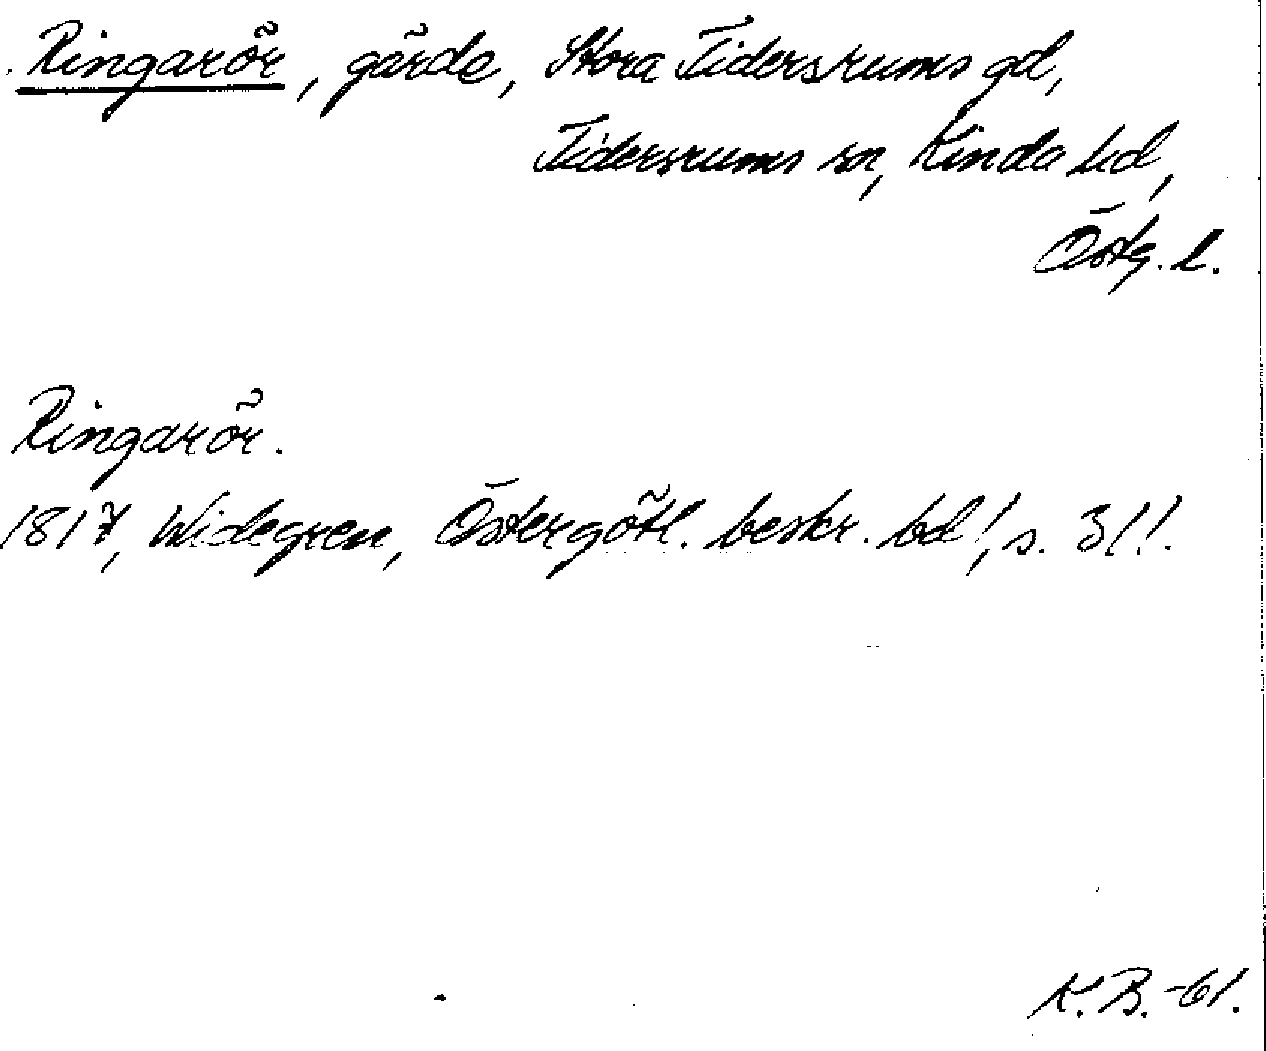 Ringarör, gärde, Stora Tidersrums gd,
Tidersrums sn, Kinda hd,
Östg. l.
Ringarör.
1817, Widegren, Östergötl. beskr. bd 1, s. 311.
K. B. -61.